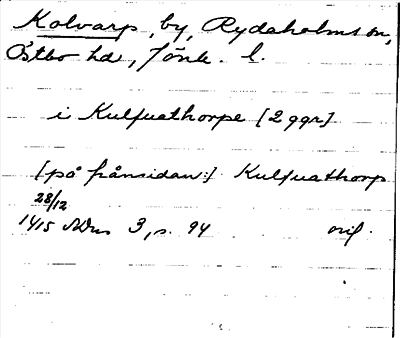 Kolvarp, by, Rydaholms sn,
Östbo hd, Jönk. l.
i Kulfuathorpe [2 ggr]
[på frånsidan:] Kulfuathorp
28/12
1415 SDns 3, s. 94 orig.